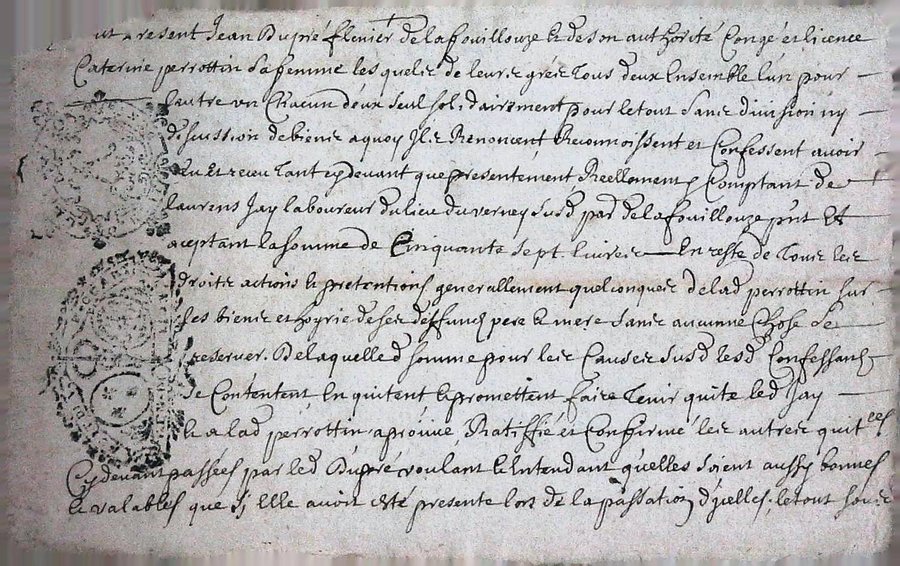 ut present Jean Dupré flenier de la fouillouze & de son authorité Congé et licence
Caterine perrottin sa femme lesquelz de leurs grés Tous deux Ensemble l'un pour
lautre un Chacun d'eux seul sol. dairement pour le tout sans division ny
discussion de biens a quoy Ils Renoncent Reconnoissent et Confessent avoir
eu Et receu Tant cy devant que presentement Reellement & Comptant de
laurens Jay laboureur du lieu du verney susd par. de la fouillouze pnt Et
aceptant la somme de Cinquante sept livres En reste de Tous les
droits actions & pretentions generallement quelconques de lad perrottin sur
les biens et hoyrie de ses deffunqs pere & mere sans aucunne Chose se
reserver. De laquelle d somme pour les Causes susd lesd Confessants
se Contentent En quitent & promettent faire Tenir quite led Jay
& a lad perrottin aprouvé, Ratiffié et Confirmé les autres quitces
Cy devant passées par led Dupré voulant & Entendant qu'elles soient aussy bonnes
& valables que sy Elle avoit esté presente lors de la passation d'ycelles, le tout soubz